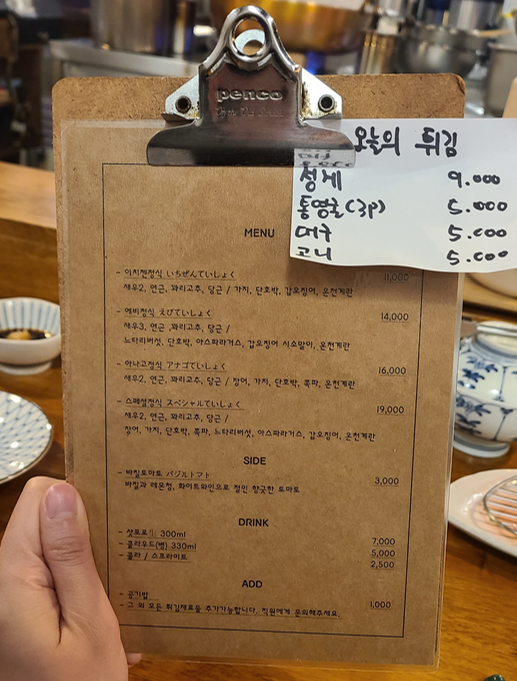 penco
오늘의 튀김
성게 9.000
통영굴(3p) 5.000
대구 5.000
고니 5.000
MENU
- 이치젠정식 いちぜんていしょく 11,000
새우2, 연근, 꽈리고추, 당근 / 가지, 단호박, 갑오징어, 온천계란
- 에비정식 えびていしょく 14,000
새우3, 연근 ,꽈리고추, 당근 /
느타리버섯, 단호박, 아스파라거스, 갑오징어 시소말이, 온천계란
- 아나고정식 アナゴていしょく 16,000
새우2, 연근, 꽈리고추, 당근 / 장어, 가지, 단호박, 쪽파, 온천계란
- 스페셜정식 スペシャルていしょく 19,000
새우2, 연근, 꽈리고추, 당근 /
장어, 가지, 단호박, 쪽파, 느타리버섯, 아스파라거스, 갑오징어, 온천계란
SIDE
- 바질토마토 バジルトマト 3,000
바질과 레몬청, 화이트와인으로 절인 향긋한 토마토
DRINK
- 300ml 7,000
- 클라우드(병) 330ml 5,000
- 콜라 / 스프라이트 2,500
ADD
- 공기밥 1,000
- 그 외 모든 튀김재료를 추가가능합니다. 직원에게 문의해주세요.